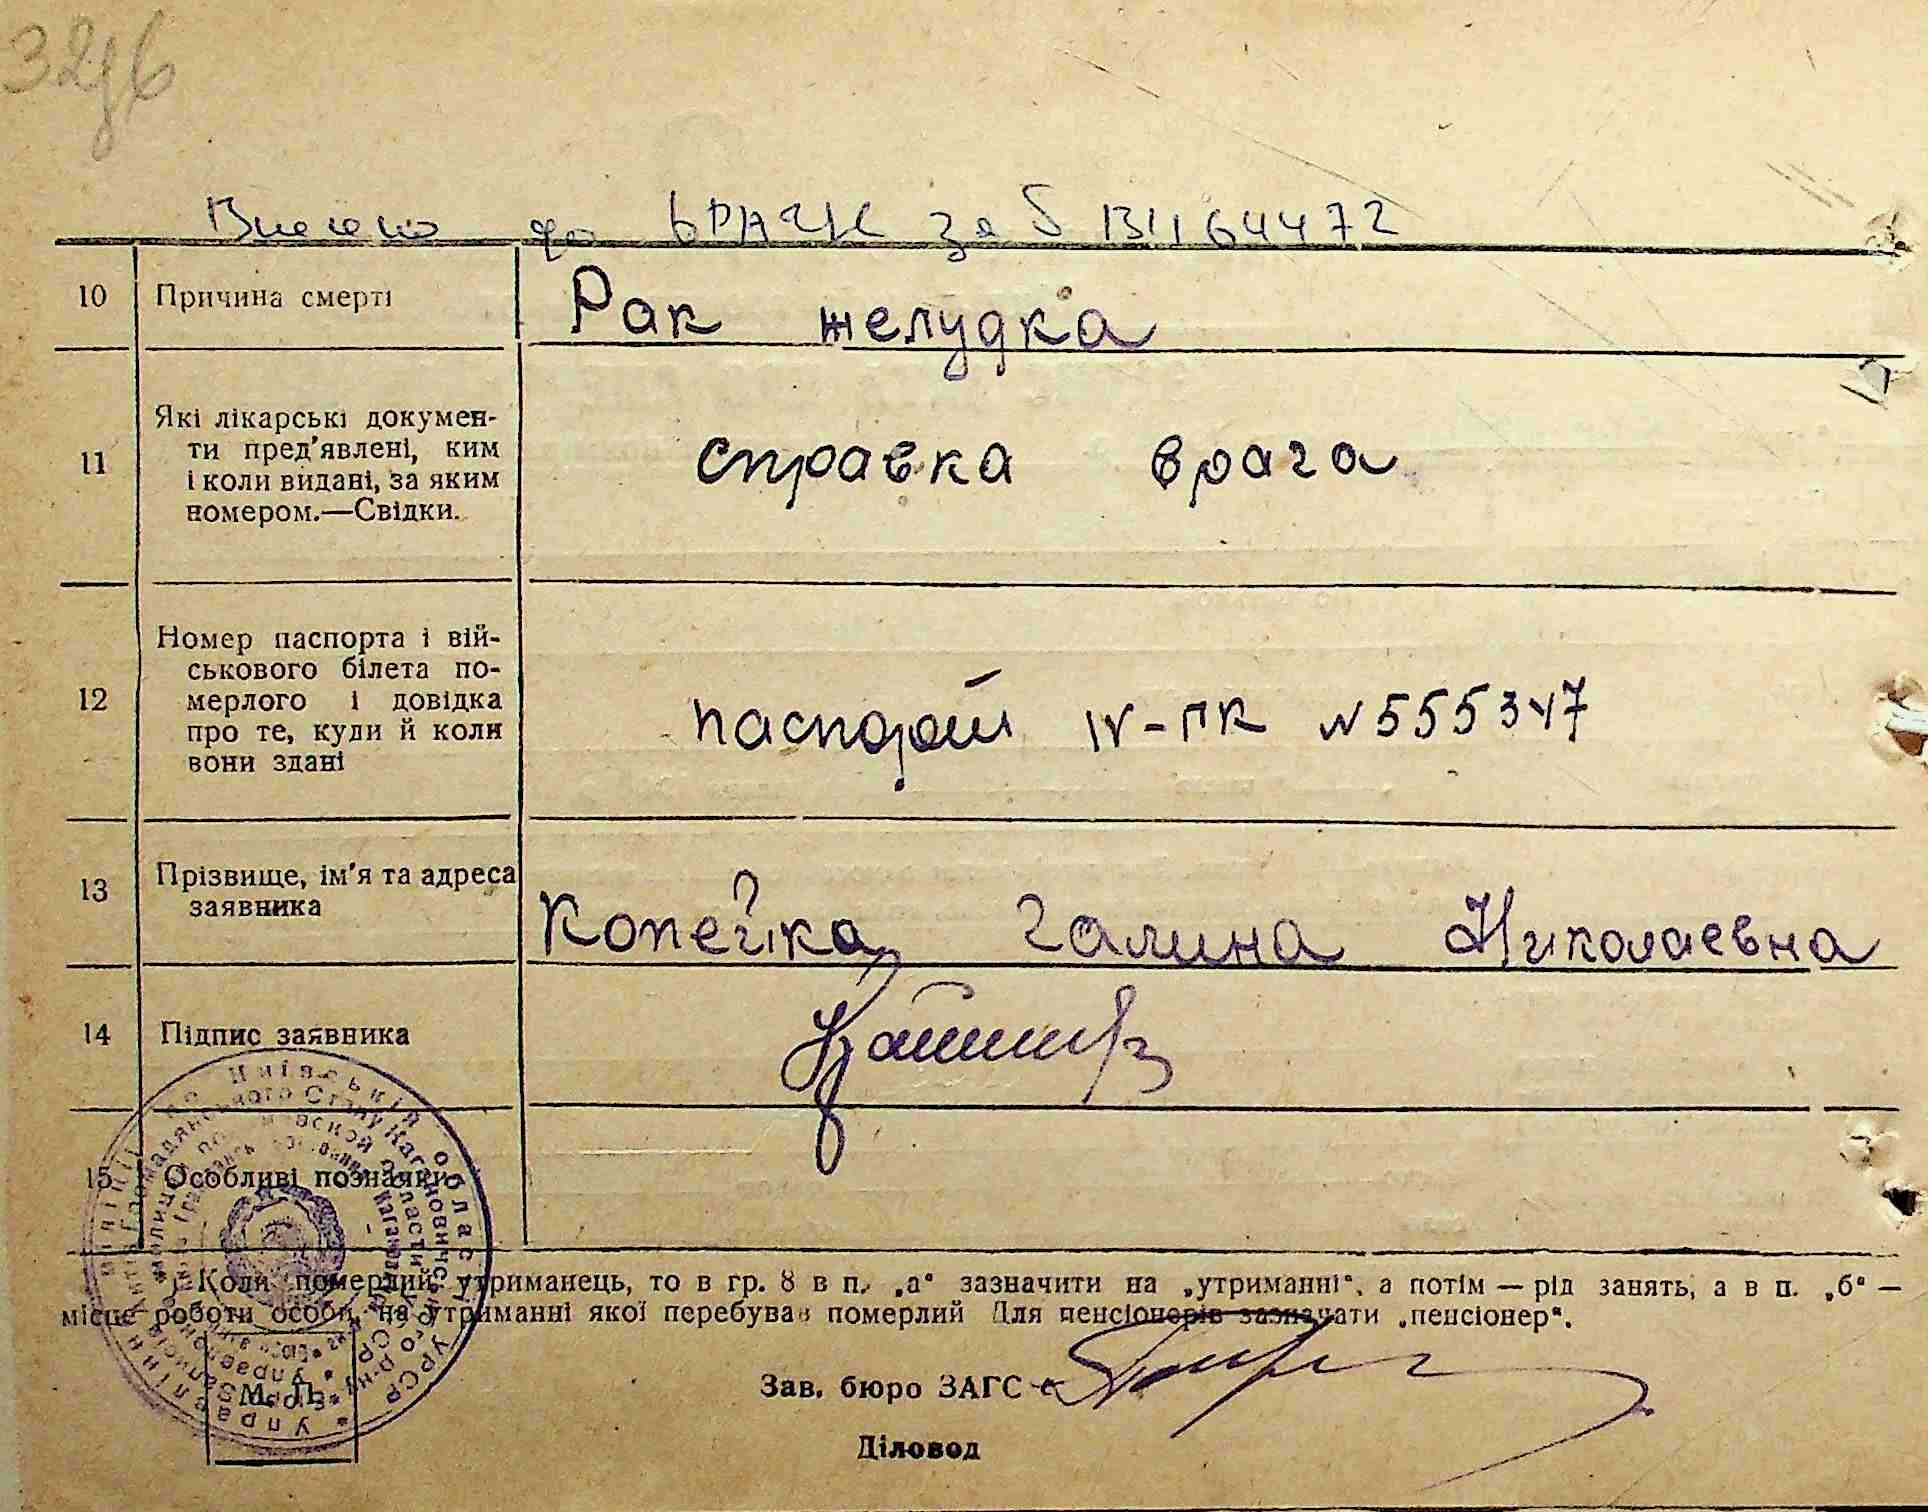 Внесено до ДРАЦС за
10 Причина смерті Рак желудка
11 Які лікарські докумен-
ти пред'явлені, ким
і коли видані, за яким
номером.—Свідки.
справка врача
12 Номер паспорта і вій-
ськового білета по-
мерлого і довідка
про те, куди й коли
вони здані
паспорт IV-ПК N 555347
13 Прізвище, ім'я та адреса
заявника
Копейка Галина Николаевна
14 Підпис заявника
15 Особливі позначки
Коли померлий утриманець, то в гр. 8 в п. „а“ зазначити на „утриманні“, а потім — рід занять, а в п. „б“ —
місце роботи особи, на утриманні якої перебував померлий Для пенсіонерів зазначати „пенсіонер“.
М. П.
Зав. бюро ЗАГС
Діловод